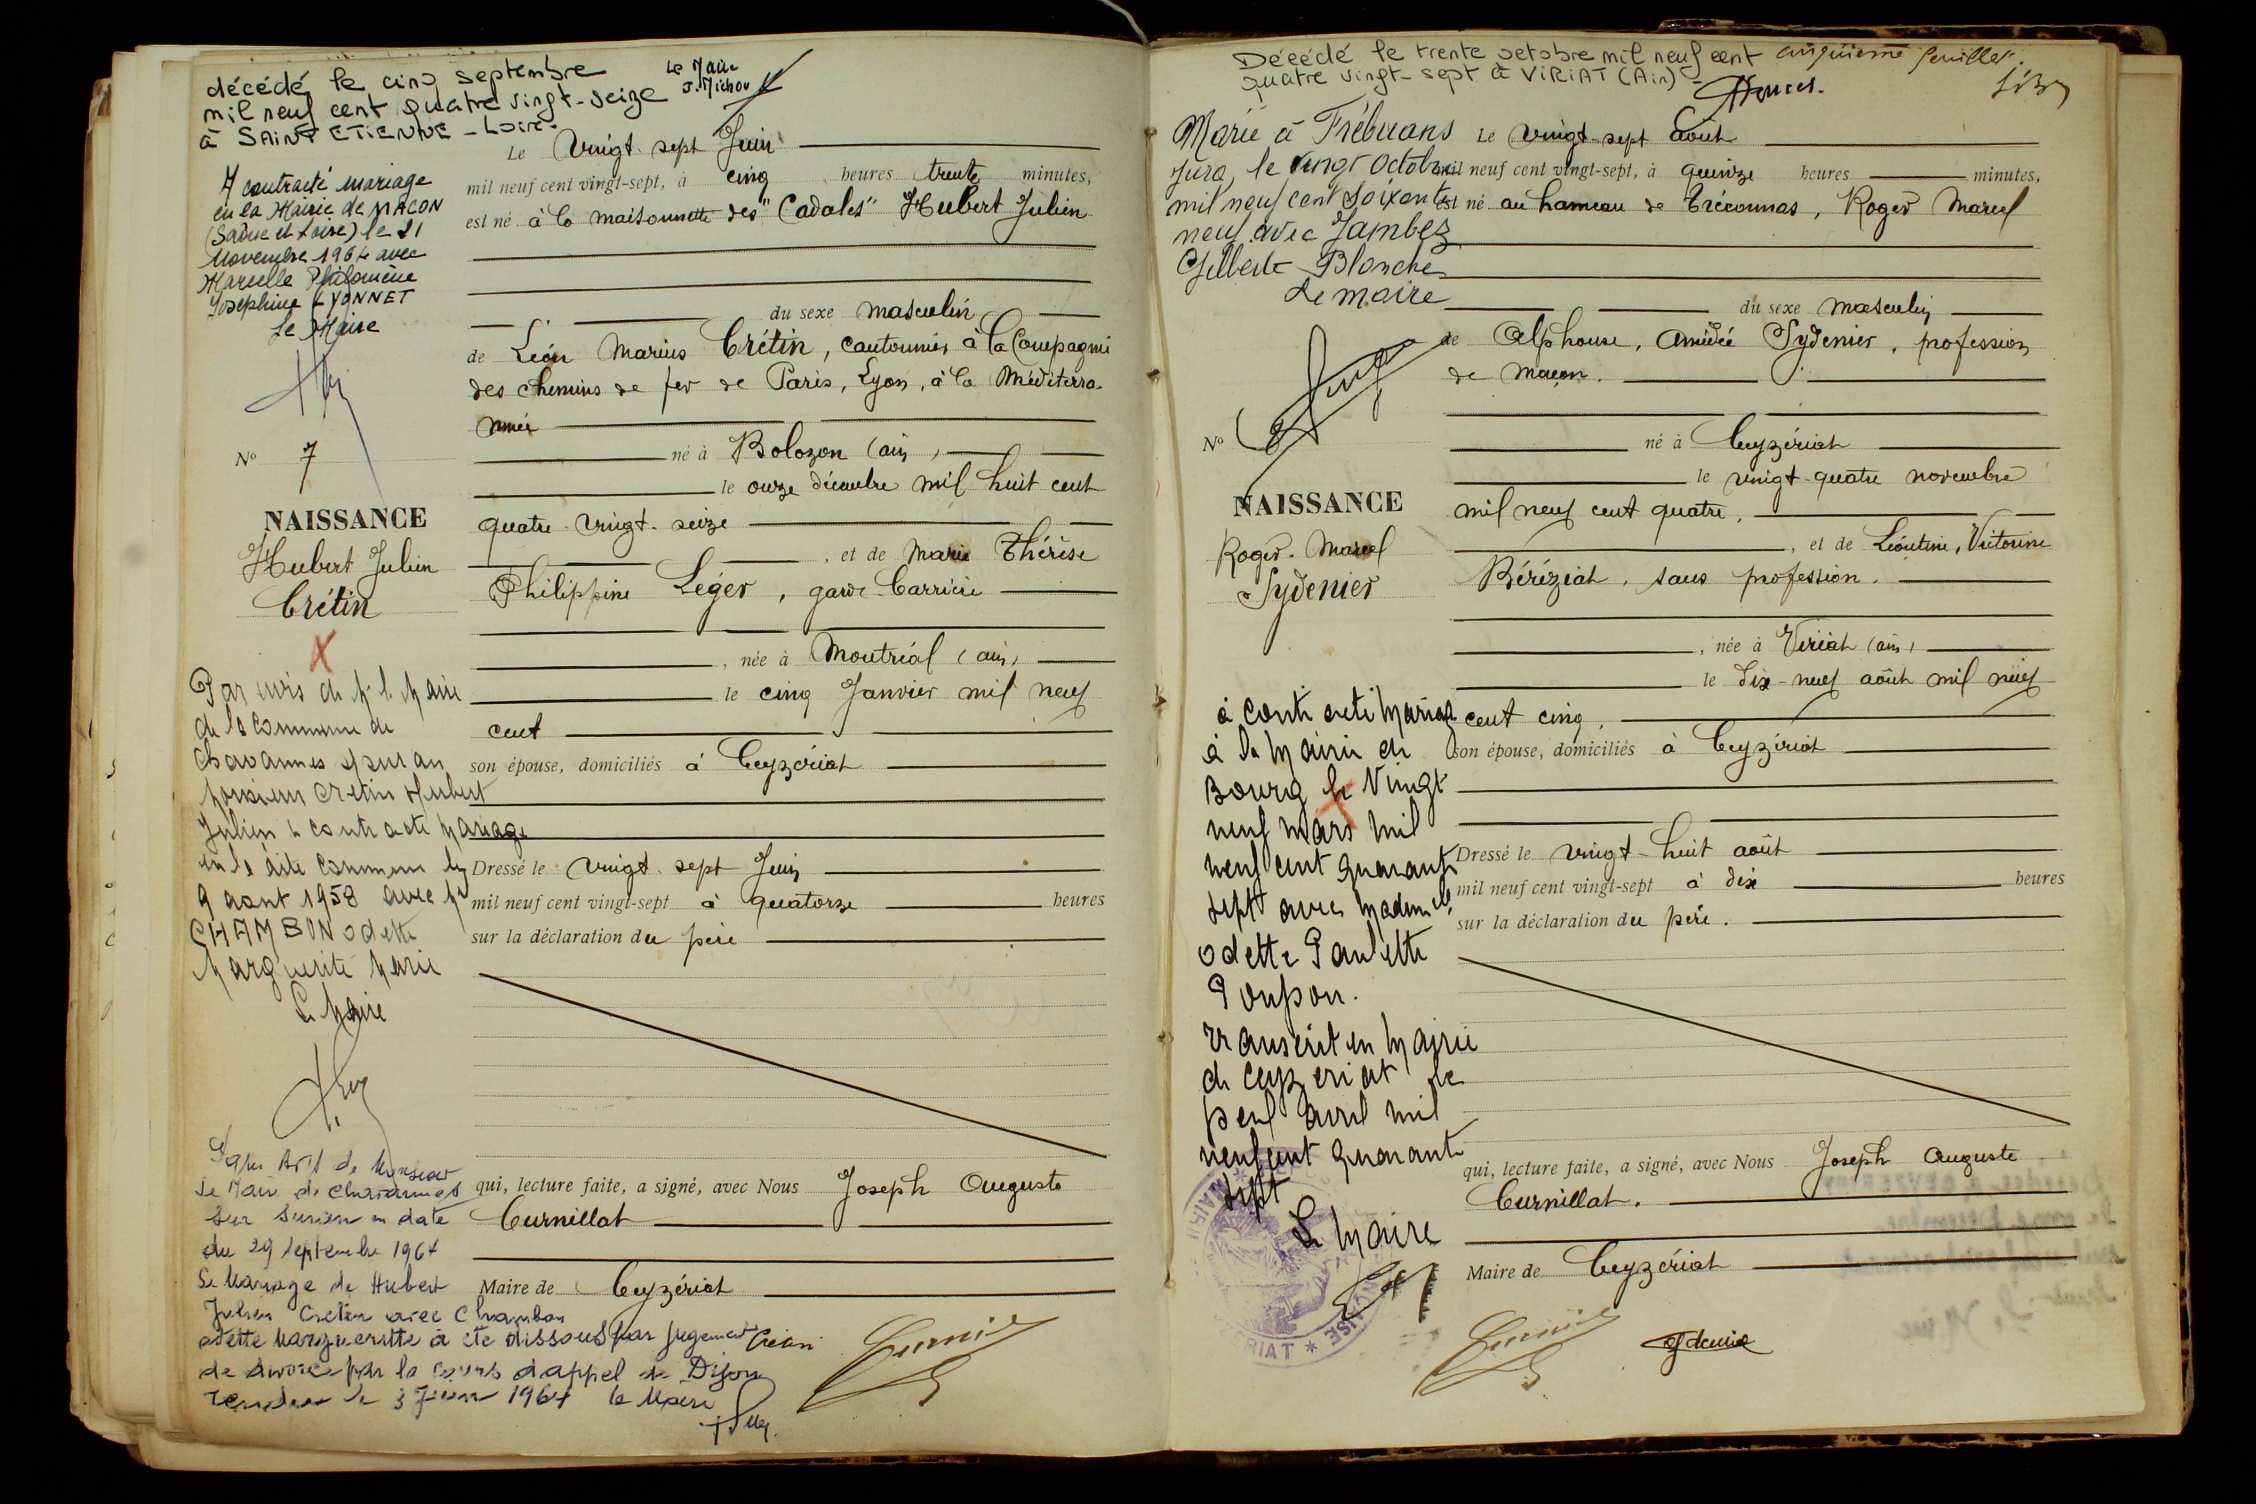 décédé le cinq septembre
mil neuf cent quatre vingt-seize
à SAINT ETIENNE - Loire.
Le Maire
J. Michon
A contracté mariage
en la Mairie de MACON
(Saône et Loire) le 21
Novembre 1964 avec
Marcelle Philomène
Joséphine LYONNET
Le Maire
N° 7
NAISSANCE
Hubert Julien
Crétin
Par avis de Mr le Maire
de la commune de
Chavannes s/ Suran
Monsieur Cretin Hubert
Julien a contracté mariage
en la dite commune le
9 aout 1958 avec
CHAMBON Odette
Marguerite Marie
Le Maire
avis de Monsieur
le Maire de Chavannes
sur Suran en date
du 29 septembre 1964
le Mariage de Hubert
Julien Cretin avec Chambon
Odette Marguerite à été dissous par jugement
de divorce par la cours d'appel de Dijon
rendue le 3 Juin 1964 le Maire
Le vingt-sept Juin
mil neuf cent vingt-sept, à cinq heures trente minutes,
est né à la maisonnette des "Cadales" Hubert Julien
du sexe masculin
de Léon Marius Crétin, cantonnier à la Compagnie
des chemins de fer de Paris, Lyon, à la Méditerra-
née
né à Bolozon (ain)
le onze décembre mil huit cent
quatre-vingt-seize
, et de Marie Thérèse
Philippine Léger, garde-barrière
, née à Montréal (ain)
le cinq Janvier mil neuf
cent
son épouse, domiciliés à Ceyzériat
Dressé le vingt-sept Juin
mil neuf cent vingt-sept à quatorze heures
sur la déclaration du père
qui, lecture faite, a signé, avec Nous Joseph Auguste
Curnillat
Maire de Ceyzériat
Crétin
Décédé le trente octobre mil neuf cent
quatre vingt-sept à VIRIAT (Ain) -
cinquième feuillet.
Marié à Trébuans
Jura, le vingt octobre
mil neuf cent soixante
neuf avec Jambez
Gilberte Blanche
Le maire
N° 8
NAISSANCE
Roger-Marcel
Sydenier
à contracté mariage
à la Mairie de
Bourg le Vingt
neuf mars mil
neuf cent quarante
sept avec Mademelle
Odette Paulette
Poupon.
Transcrit en Mairie
de Ceyzeriat le
neuf avril mil
neuf cent quarante
sept
Le Maire
Le vingt-sept août
mil neuf cent vingt-sept, à quinze heures minutes,
est né au hameau de Tréconnas, Roger Marcel
du sexe masculin
de Alphonse, Amédée Sydenier, profession
de maçon.
né à Ceyzériat
le vingt-quatre novembre
mil neuf cent quatre,
, et de Léontine, Victorine
Béréziat, sans profession.
, née à Viriat (ain)
le dix-neuf août mil neuf
cent cinq,
son épouse, domiciliés à Ceyzériat
Dressé le vingt-huit août
mil neuf cent vingt-sept à dix heures
sur la déclaration du père.
qui, lecture faite, a signé, avec Nous Joseph Auguste
Curnillat.
Maire de Ceyzériat
Sydenier